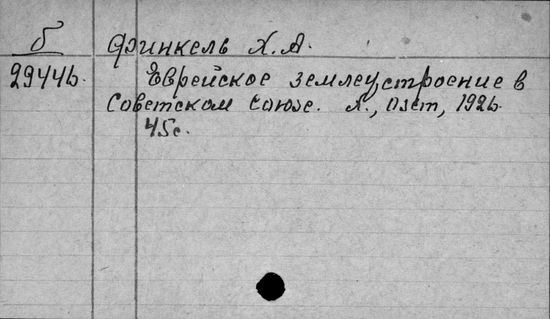 б Финкель Х. А.
29446. Еврейское землеустроение в
Советском союзе. Л., Озет, 1926.
45с.